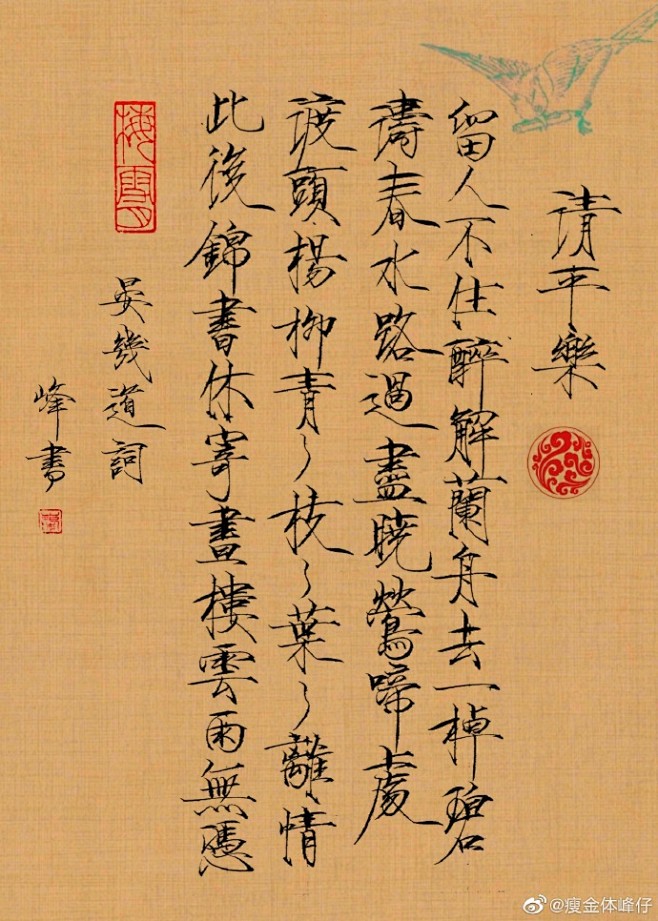 清平樂
留人不住醉解蘭舟去一棹碧
濤春水路過盡曉鶯啼處
渡頭楊柳青〻枝〻葉〻離情
此後錦書休寄畫樓雲雨無憑
晏幾道詞
峰書
@瘦金体峰仔